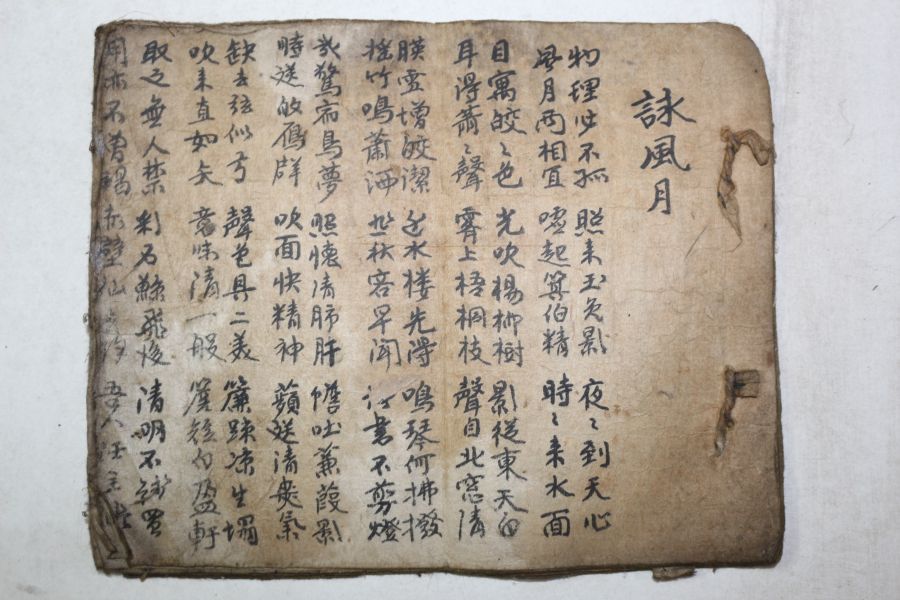 詠風月
物理必不孤 照来玉兔影 夜〻到天心
風月两相宜 噓起箕伯精 時〻来水面
目寓皎〻色 光吹楊柳樹 影從東天白
耳得蕭〻聲 霽上梧桐枝 聲自北窓清
映雪增皎潔 近水楼先得 鳴琴何拂撥
搖竹鳴蕭洒 悲秋客早聞 書不剪燈
幾驚宿鳥夢 照懷清肺肝 吐蒹葭影
時送鴈群 吹面快精神 蘋送清爽氣
缺去弦似弓 聲色具二美 簾踈凉生榻
吹来直如矢 意味清一般 短白盈軒
取之無人禁 石鯨飛後 清明不買
用亦不曾竭 赤壁仙 吾人